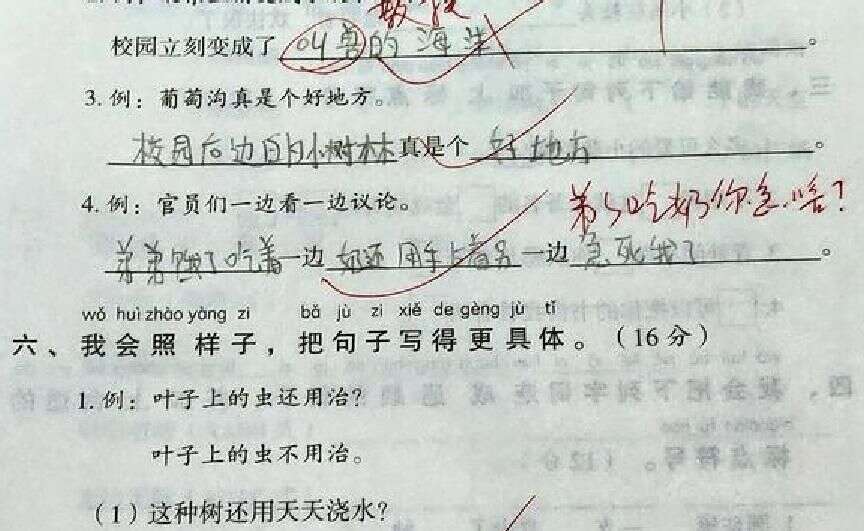 校园立刻变成了 的海洋。
3.例：葡萄沟真是个好地方。
校园后边的小树林真是个好地方。
弟弟吃奶你急啥？
4.例：官员们一边看一边议论。
弟弟饿了吃着一边奶还用手占着另一边急死我了。
wǒ huì zhào yàng zi bǎ jù zi xiě de gèng jù tǐ
六、我会照样子，把句子写得更具体。（16分）
1.例：叶子上的虫还用治？
叶子上的虫不用治。
（1）这种树还用天天浇水？